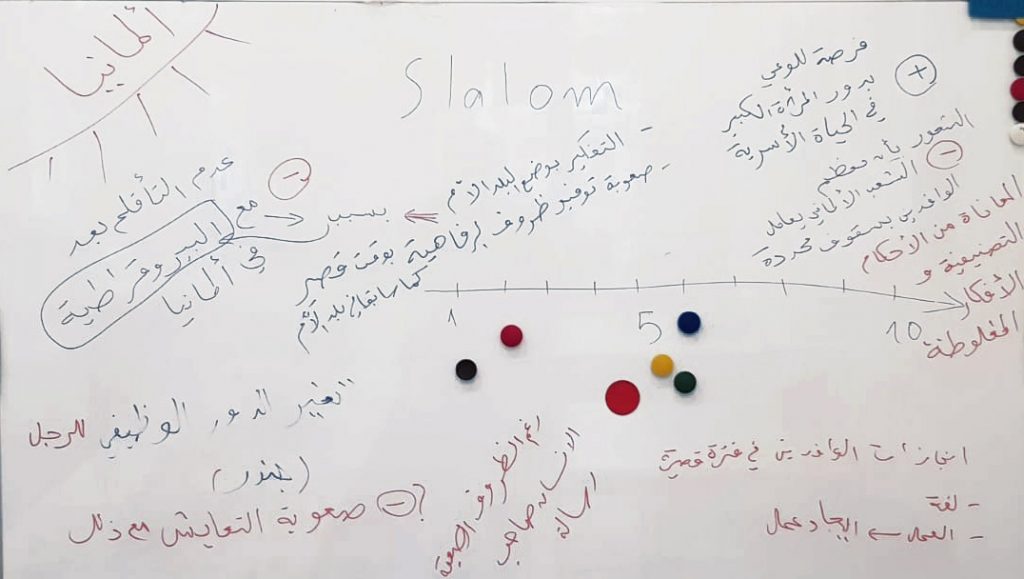 ألمانيا
Slalom
+
فرصة للوعي
بدور المرأة الكبير
في الحياة الأسرية
-
الشعور بأن معظم
الشعب الألماني يعامل
الوافدين بسقوف محددة
المعاناة من الأحكام
التصنيفية و
الأفكار
المغلوطة
- التفكير بوضع البلد الأم
- صعوبة توفير ظروف الرفاهية بوقت قصير
كما سابقا في بلد الأم
بسبب
-
عدم التأقلم بعد
مع البيروقراطية
في ألمانيا
1 5 10
التغيير الدور الوظيفي للرجل
(جندر)
? - صعوبة التعايش مع ذلك
رغم الظروف الصعبة
الانسان صاحب
رسالة
انجازات الوافدين في فترة قصيرة
- لغة
- العمل ← ايجاد عمل